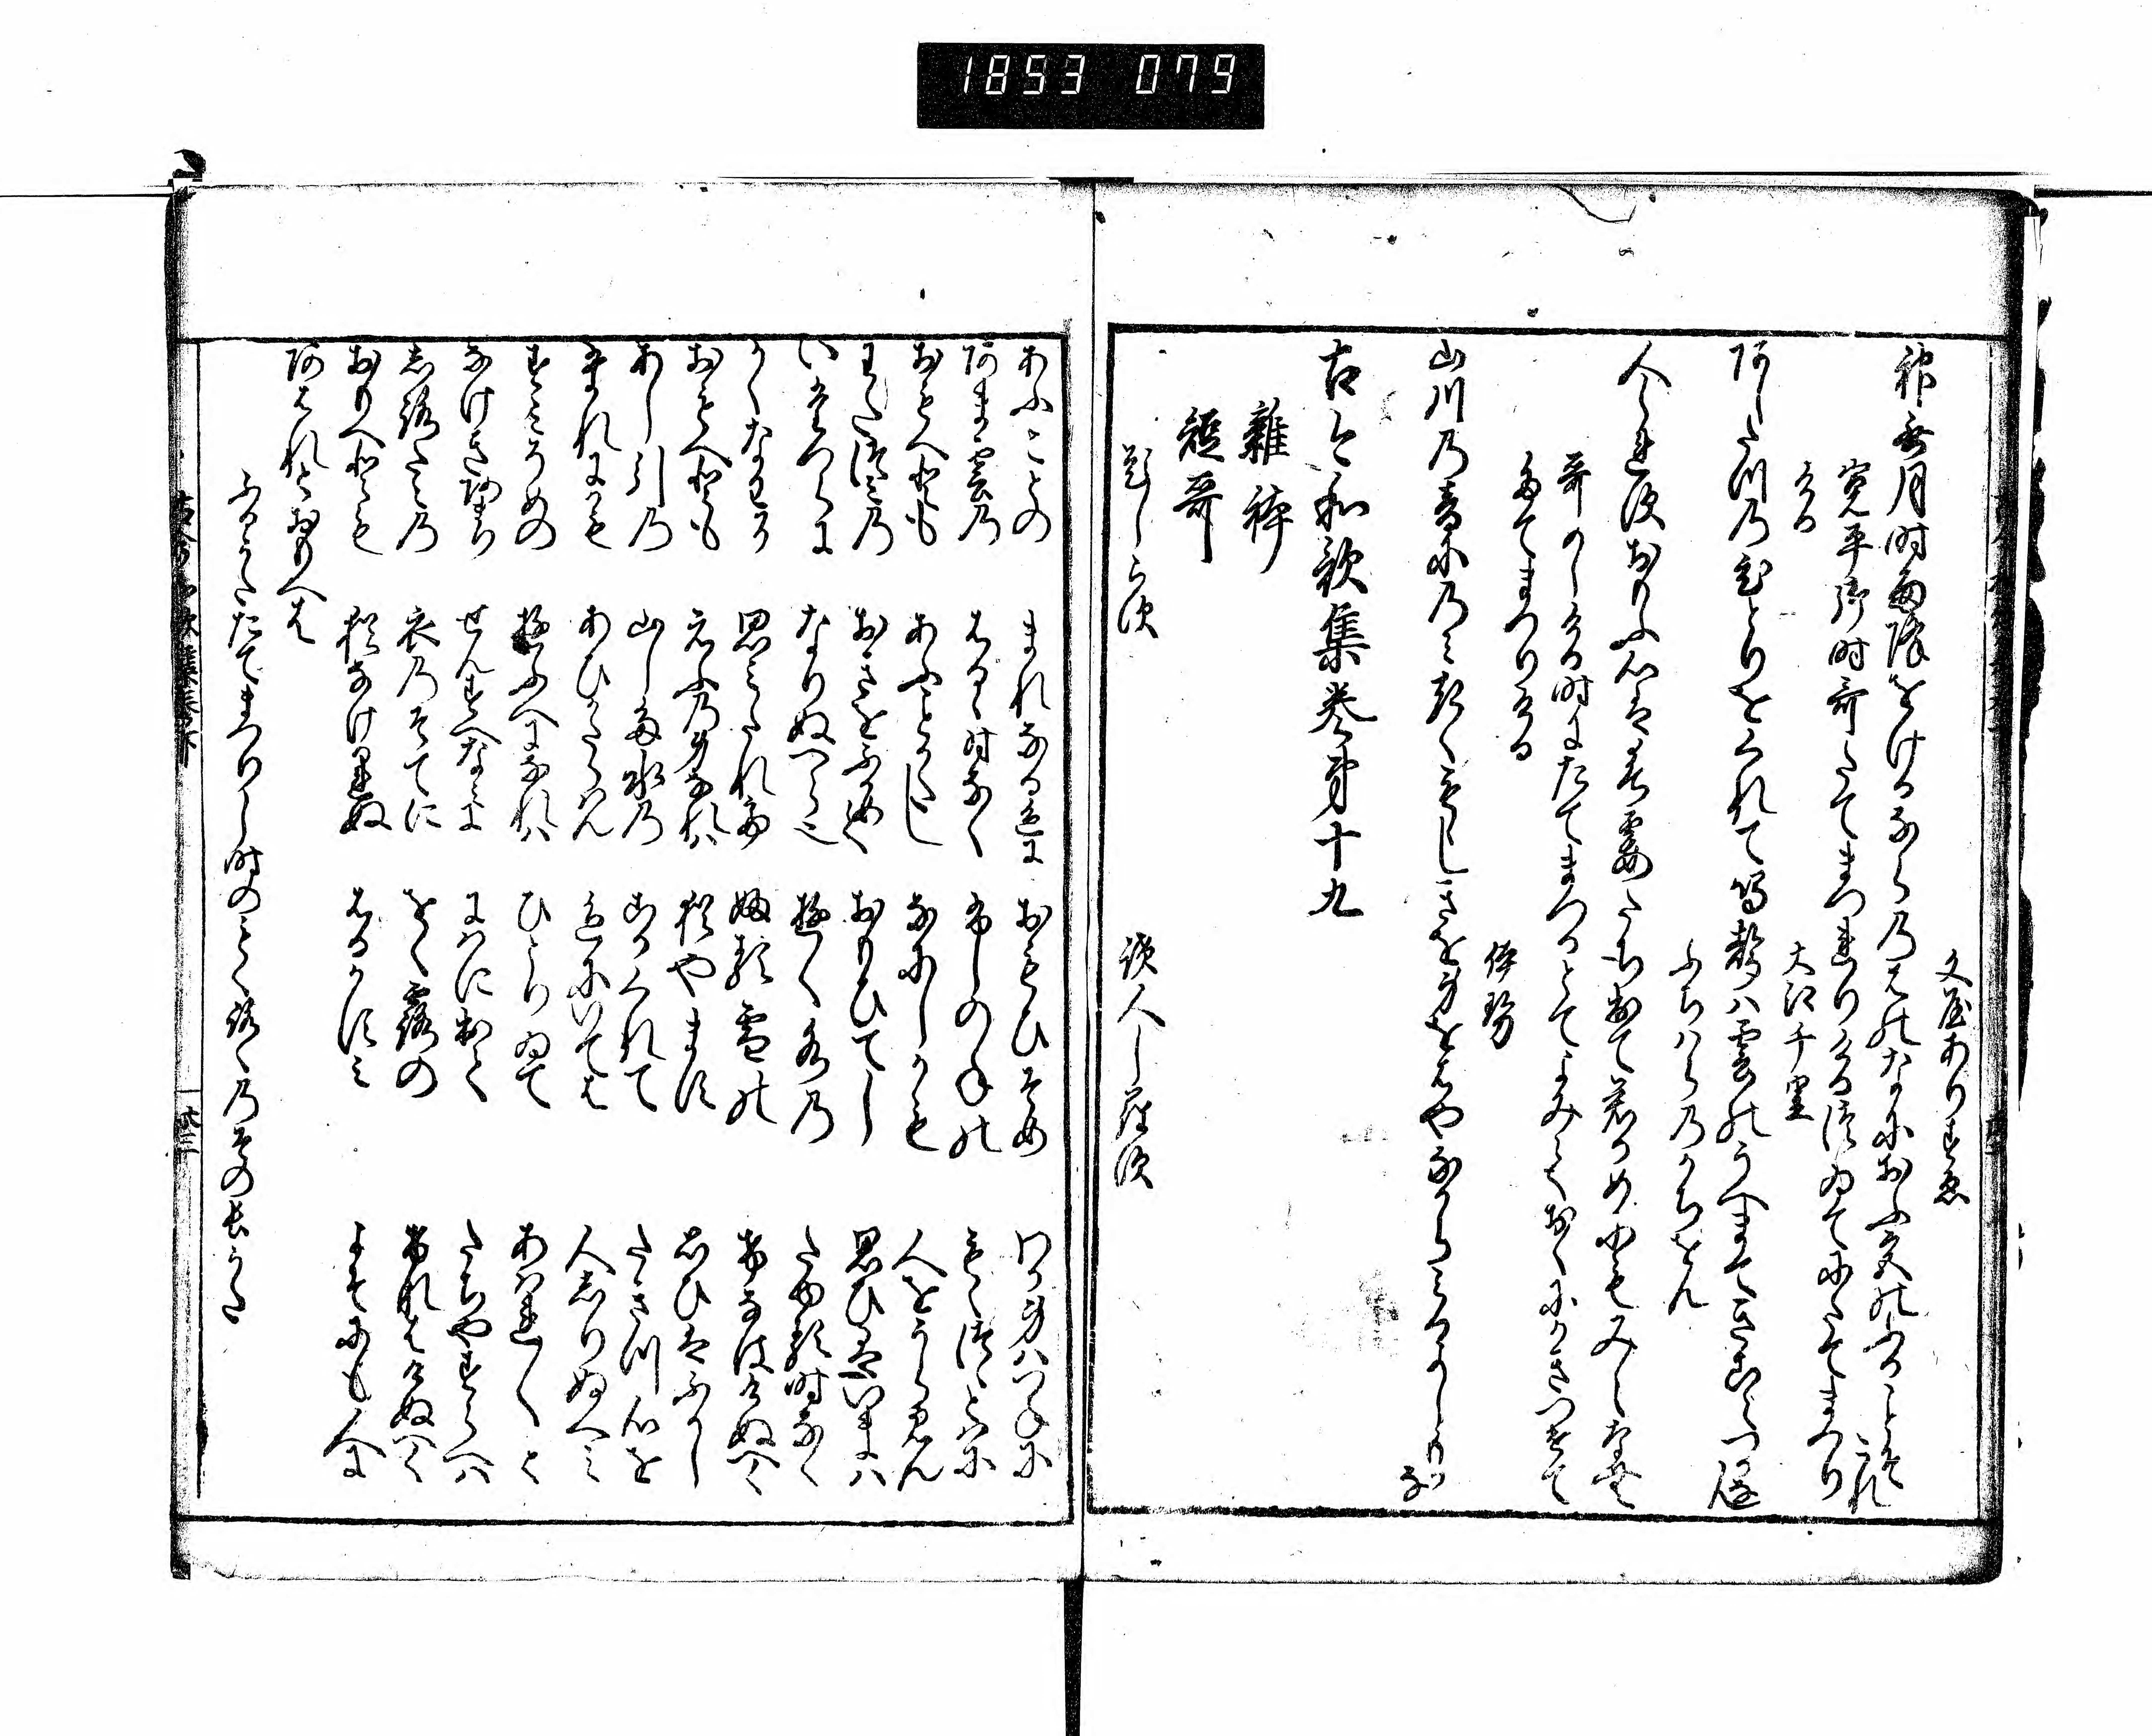 1853 079
文屋ありすゑ
神無月時雨降をけるならの葉のなにおふ宮のふることそこれ
寛平御時哥たてまつりける次ゐてにたてまつり
ける
大江千里
あしたつのひとりをくれて鳴声は雲のうへまてきこえつかなん
ふちはらのかちをん
人しれすおもふ心は春霞たちいてて君かめにもみえなむ
哥めしける時にたてまつるとてよみておくにかきつけて
たてまつりける
伊勢
山川の音にのみきくもゝしきを身をはやなからみるよしもかな
古今和歌集巻第十九
雑体
短哥
題しらす
読人しらす
あふことの
まれなる色に
おもひそめ
わか身はつねに
あま雲の
はるゝ時なく
ふしのねの
もえつゝとはに
おもへとも
あふことかたし
なにしかも
人をうらみん
わたつみの
おきをふかめて
おもひてし
思ひはいまは
いたつらに
なりぬへらなり
ゆく水の
たゆる時なく
かくなわに
思みたれて
ふる雪の
けなはけぬへく
おもへとも
えふの身なれは
猶やます
思ひはふかし
あし引の
山した水の
こかくれて
たきつ心を
たれにかも
あひかたらはん
色にいては
人しりぬへみ
すみそめの
ゆふへになれは
ひとりゐて
あはれ〳〵と
なけきあまり
せんすへなみに
にはにいてゝ
たちやすらへは
しろたへの
衣のそてに
をく露の
けなはけぬへく
おもへとも
猶なけかれぬ
はるかすみ
よそにも人に
あはんとおもへは
ふるうたたてまつりし時のもくろくのそのなかうた